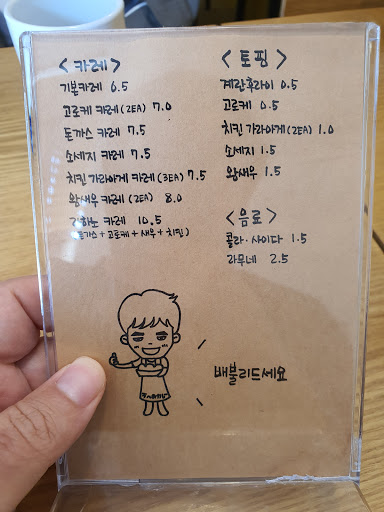 <카레>
기본카레 6.5
고로케 카레(2EA) 7.0
돈까스 카레 7.5
소세지 카레 7.5
치킨 가라아게 카레(3EA) 7.5
왕새우 카레 (2EA) 8.0
카레 10.5
돈까스+고로케+새우+치킨)
<토핑>
계란후라이 0.5
고로케 0.5
치킨 가라아게(2EA) 1.0
소세지 1.5
왕새우 1.5
<음료>
콜라·사이다 1.5
라무네 2.5
배불리드세요